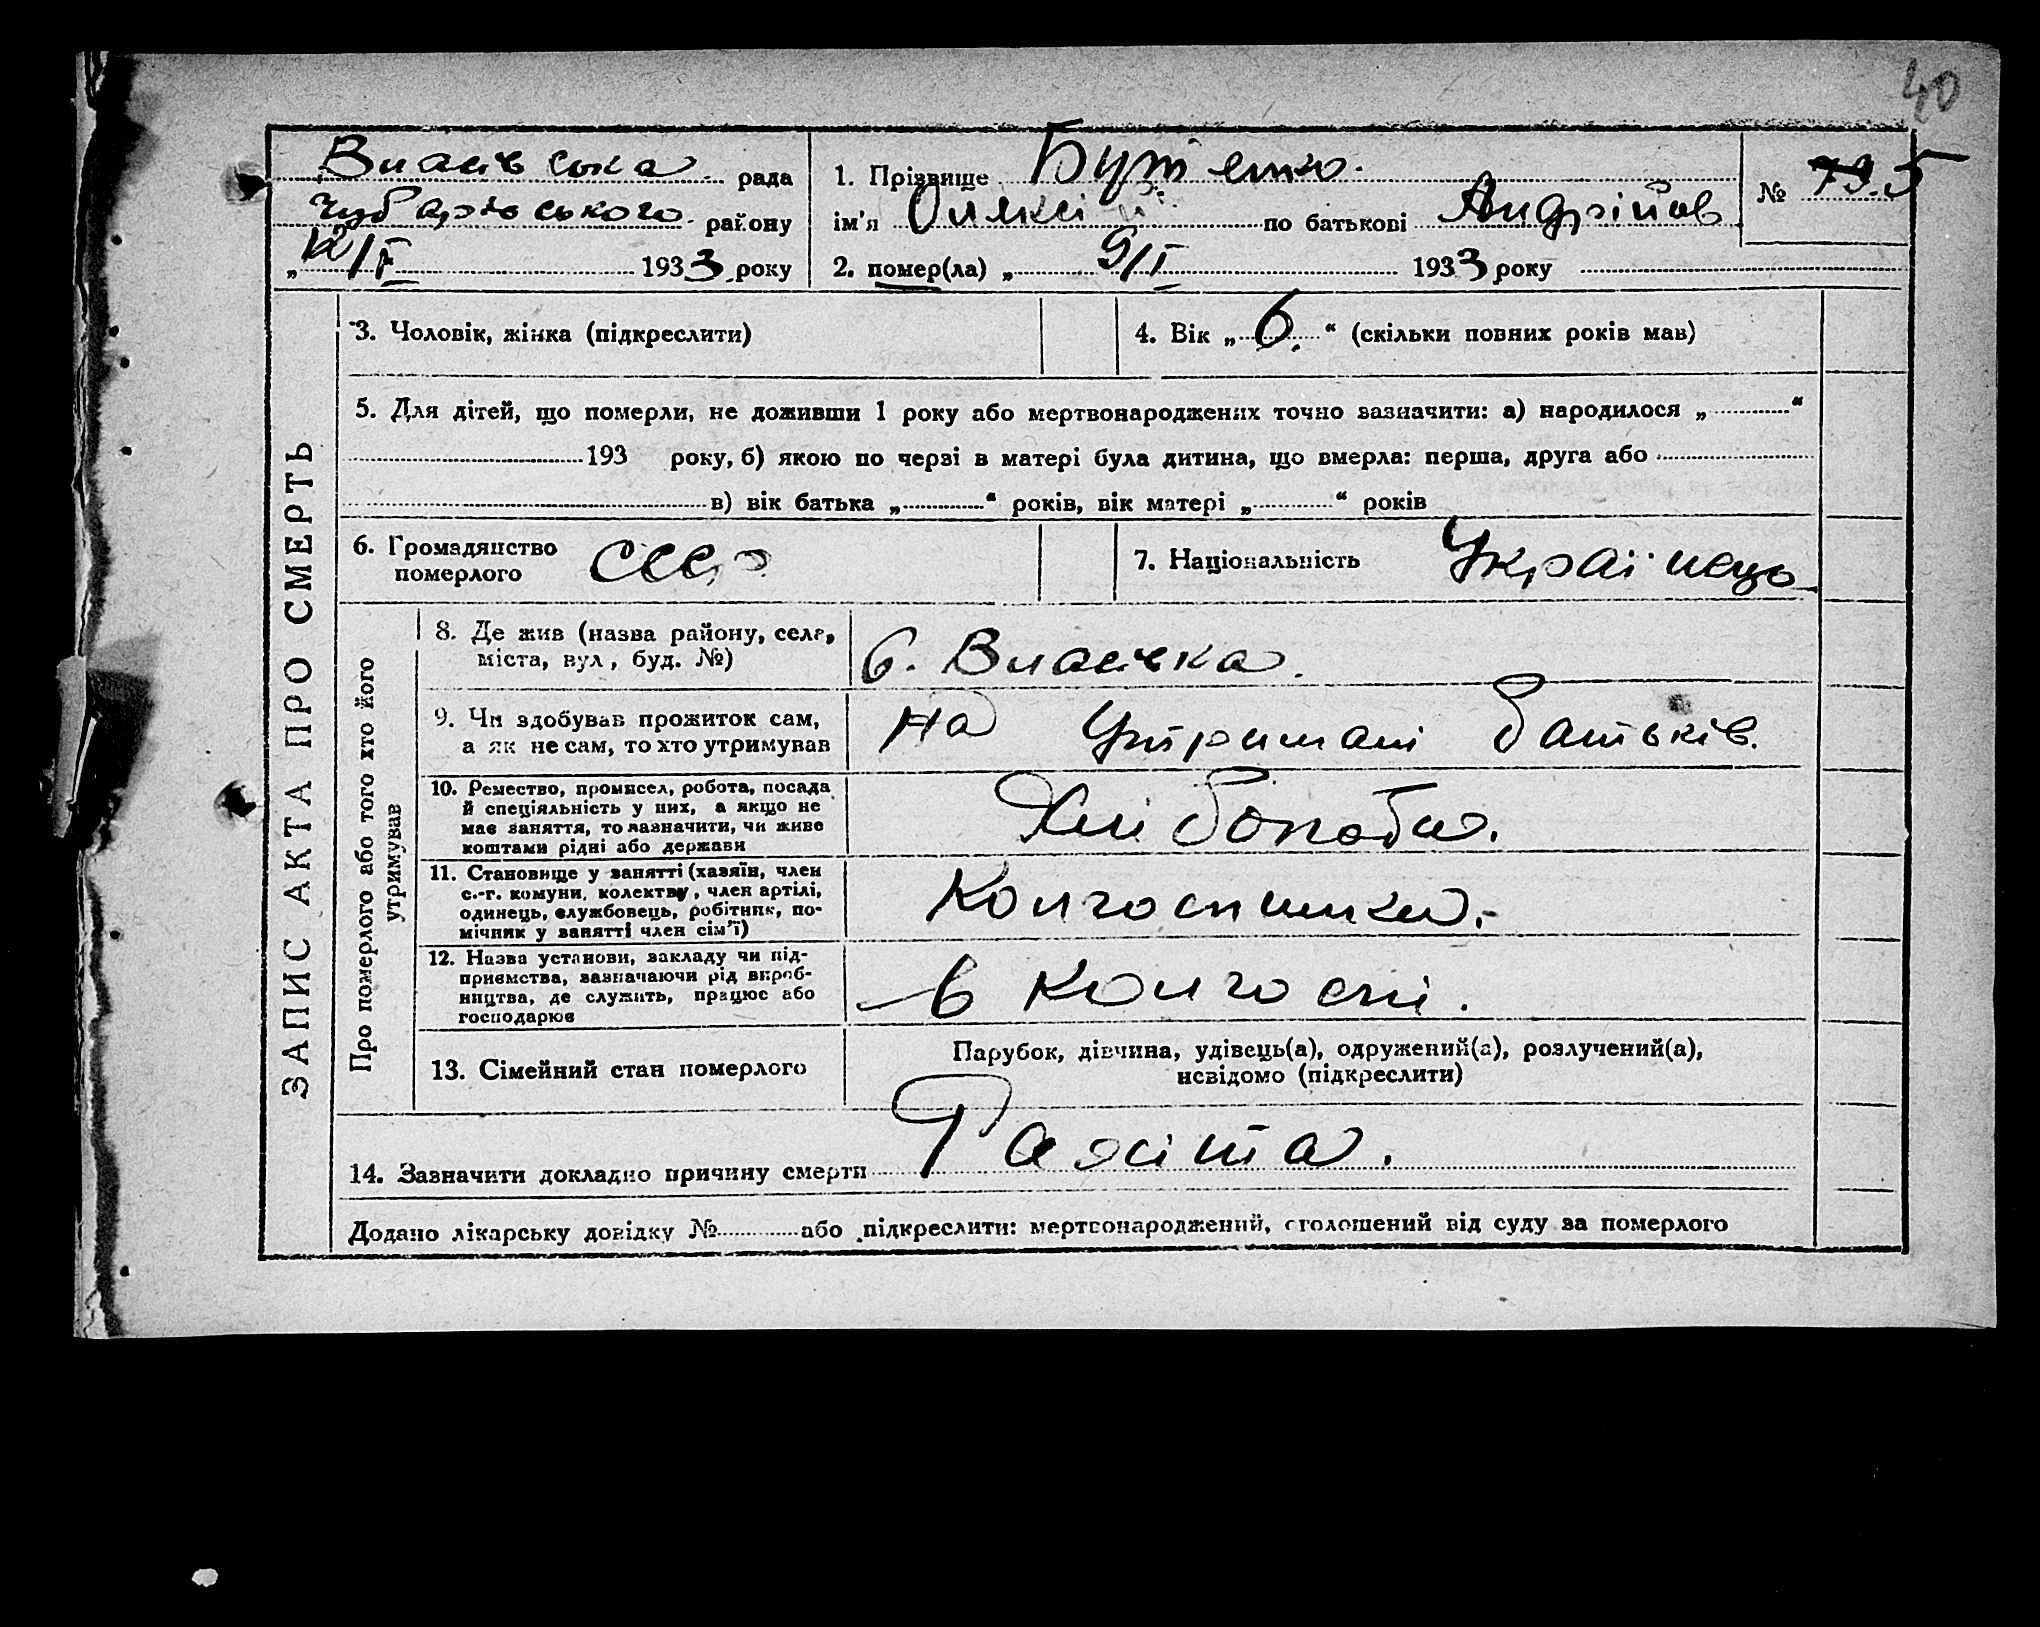 40
Власівська рада
Чубарівського району
„ 12/I 1933 року
1. Прізвище Бутенко.
ім'я Олексій по батькові Андрійов
2. помер(ла) „ 9/I 1933 року
№ 73. 5
ЗАПИС АКТА ПРО СМЕРТЬ
3. Чоловік, жінка (підкреслити)
4. Вік „ 6. “ (скільки повних років мав)
5. Для дітей, що померли, не доживши 1 року або мертвонароджених точно зазначити: а) народилося „ “
193 року, б) якою по черзі в матері була дитина, що вмерла: перша, друга або
в) вік батька „ “ років, вік матері „ “ років
6. Громадянство
померлого СССР
7. Національність Українець
Про померлого або того хто його
утримував
8. Де жив (назва району, села,
міста, вул, буд. №)
с. Власівка.
9. Чи здобував прожиток сам,
а як не сам, то хто утримував
на утримані батьків.
10. Ремество, промисел, робота, посада
й спеціяльність у них, а якщо не
має заняття, то зазначити, чи живе
коштами рідні або держави
Хлібороби.
11. Становище у занятті (хазяїн, член
с.-г. комуни, колективу, член артілі,
одинець, службовець, робітник, по-
мічник у занятті член сім'ї)
Колгоспники.
12. Назва установи, закладу чи під-
приємства, зазначаючи рід вироб-
ництва, де служить, працює або
господарює
в колгоспі.
13. Сімейний стан померлого
Парубок, дівчина, удівець(а), одружений(а), розлучений(а),
невідомо (підкреслити)
14. Зазначити докладно причину смерти Рахіта.
Додано лікарську довідку № або підкреслити: мертвонароджений, оголошений від суду за померлого